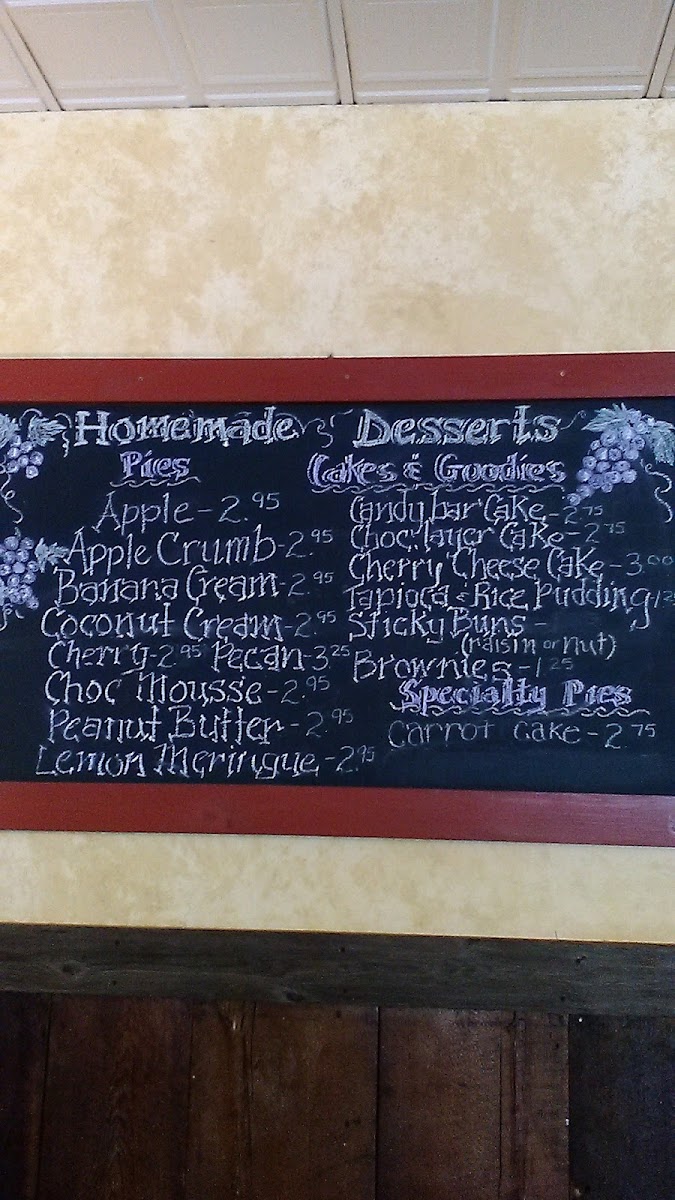 Homemade Desserts
Pies
Apple - 2.95
Apple Crumb - 2.95
Banana Cream - 2.95
Coconut Cream - 2.95
Cherry - 2.95 Pecan - 3.25
Choc Mousse - 2.95
Peanut Butter - 2.95
Lemon Meringue - 2.95
Cakes & Goodies
Candy bar Cake - 2.75
Choc. layer Cake - 2.75
Cherry Cheese Cake - 3.00
Tapioca & Rice Pudding
Sticky Buns -
(raisin or nut)
Brownies - 1.25
Specialty Pies
Carrot Cake - 2.75